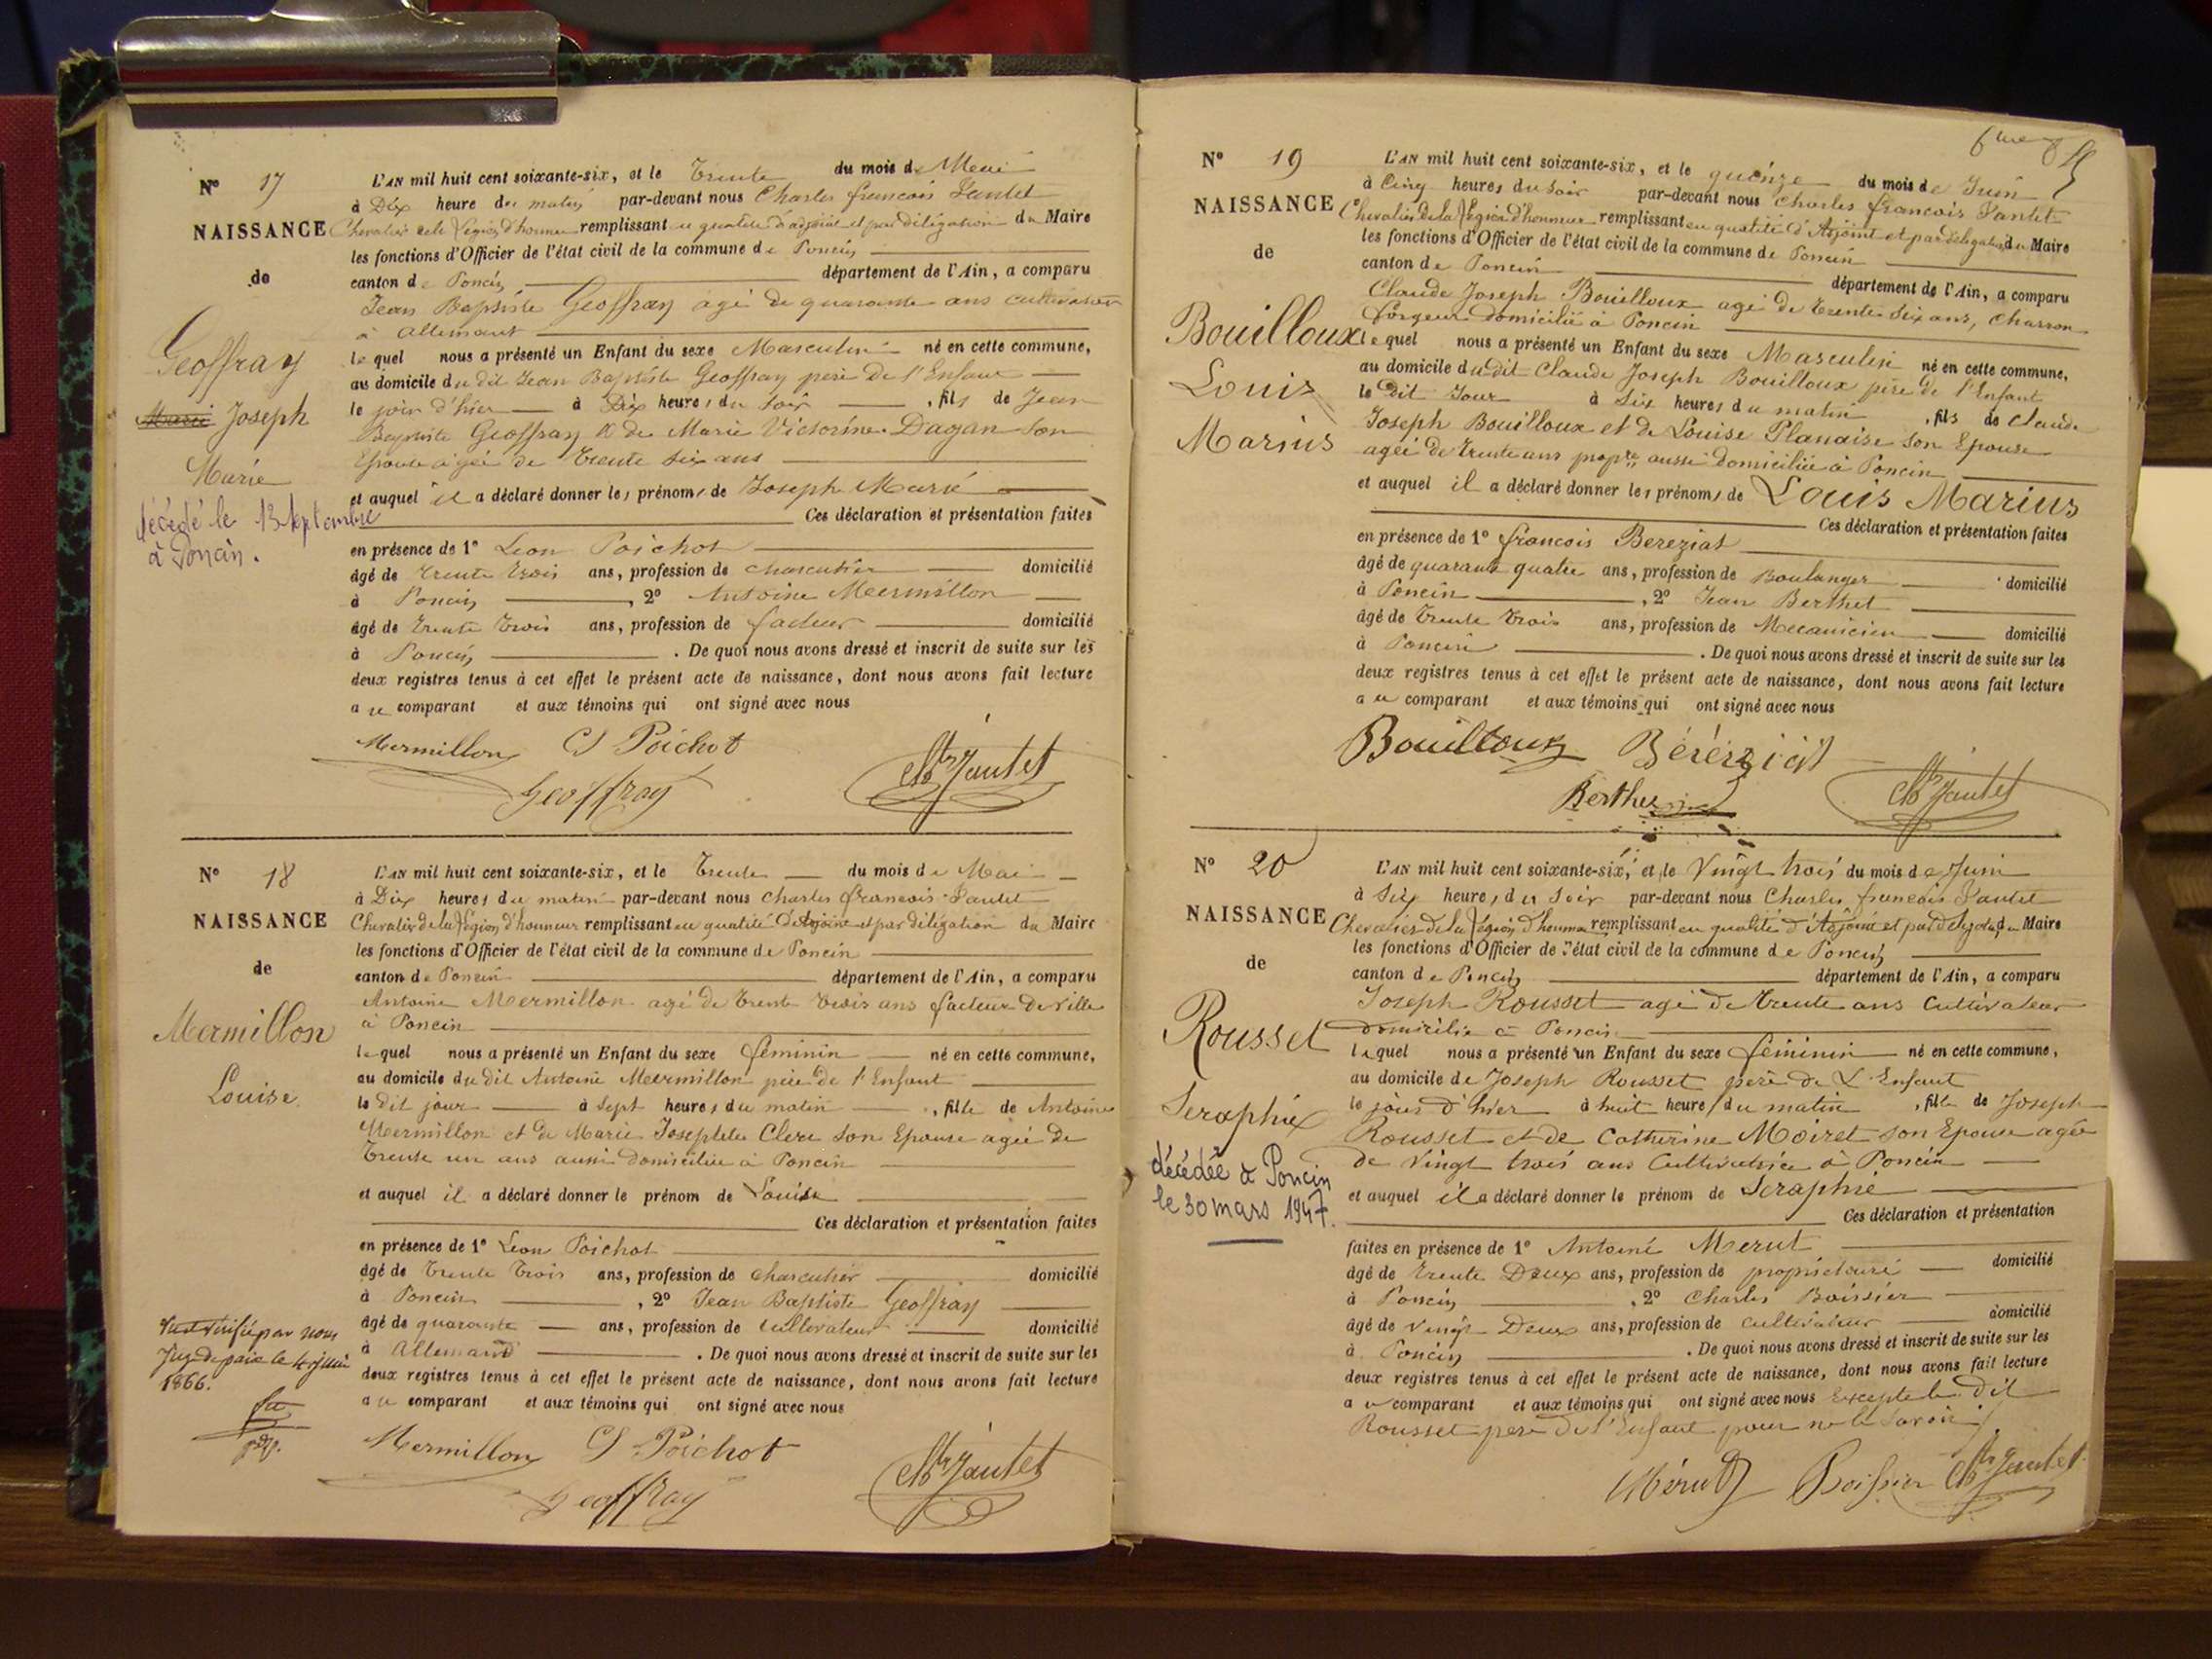 N° 17
NAISSANCE
de
Geoffray
Marie Joseph
Marie
décédé le 13 septembre
à Poncin.
L'AN mil huit cent soixante-six, et le Trente du mois de Mai
à Dix heure du matin par-devant nous Charles françois Jantet
Chevalier de la Légion d'honneur remplissant en qualité d'adjoint et par délégation du Maire
les fonctions d'Officier de l'état civil de la commune de Poncin
canton de Poncin département de l'Ain, a comparu
Jean Baptiste Geoffray agé de quarante ans cultivateur
à allemant
lequel nous a présenté un Enfant du sexe Masculin né en cette commune,
au domicile du dit Jean Baptiste Geoffray père de l'Enfant
le jour d'hier à Dix heures du soir, fils de Jean
Baptiste Geoffray & de Marie Victorine Dagan son
Epouse agée de trente six ans
et auquel il a déclaré donner les prénoms de Joseph Marie
Ces déclaration et présentation faites
en présence de 1° Leon Poichot
âgé de trente trois ans, profession de charcutier domicilié
à Poncin, 2° Antoine Mermillon
âgé de trente trois ans, profession de facteur domicilié
à Poncin. De quoi nous avons dressé et inscrit de suite sur les
deux registres tenus à cet effet le présent acte de naissance, dont nous avons fait lecture
au comparant et aux témoins qui ont signé avec nous
Mermillon Poichot
Geoffray Jantet
N° 18
NAISSANCE
de
Mermillon
Louise
Vu et vérifié par nous
Juge de paix le 4 juin
1866.
L'AN mil huit cent soixante-six, et le Trente du mois de Mai
à Dix heures du matin par-devant nous Charles françois Jantet
Chevalier de la Légion d'honneur remplissant en qualité d'Adjoint et par délégation du Maire
les fonctions d'Officier de l'état civil de la commune de Poncin
canton de Poncin département de l'Ain, a comparu
Antoine Mermillon agé de trente trois ans facteur de ville
à Poncin
lequel nous a présenté un Enfant du sexe féminin né en cette commune,
au domicile du dit Antoine Mermillon père de l'Enfant
le dit jour à sept heures du matin, fille de Antoine
Mermillon et de Marie Josephte Clerc son Epouse agée de
trente un ans aussi domiciliée à Poncin
et auquel il a déclaré donner le prénom de Louise
Ces déclaration et présentation faites
en présence de 1° Leon Poichot
âgé de trente trois ans, profession de charcutier domicilié
à Poncin, 2° Jean Baptiste Geoffray
âgé de quarante ans, profession de cultivateur domicilié
à Allemand. De quoi nous avons dressé et inscrit de suite sur les
deux registres tenus à cet effet le présent acte de naissance, dont nous avons fait lecture
au comparant et aux témoins qui ont signé avec nous
Mermillon Poichot
Geoffray Jantet
N° 19
NAISSANCE
de
Bouilloux
Louis
Marius
L'AN mil huit cent soixante-six, et le quinze du mois de Juin
à Cinq heures du soir par-devant nous Charles françois Jantet
Chevalier de la Légion d'honneur remplissant en qualité d'Adjoint et par délégation du Maire
les fonctions d'Officier de l'état civil de la commune de Poncin
canton de Poncin département de l'Ain, a comparu
Claude Joseph Bouilloux agé de trente six ans, charron
forgeur domicilié à Poncin
lequel nous a présenté un Enfant du sexe Masculin né en cette commune,
au domicile du dit Claude Joseph Bouilloux père de l'Enfant
le dit Jour à Six heures du matin, fils de Claude
Joseph Bouilloux et de Louise Planaise son Epouse
agée de trente ans prop.re aussi domiciliée à Poncin
et auquel il a déclaré donner les prénoms de Louis Marius
Ces déclaration et présentation faites
en présence de 1° françois Bereziat
âgé de quarante quatre ans, profession de Boulanger domicilié
à Poncin, 2° Jean Berthet
âgé de trente trois ans, profession de Mecanicien domicilié
à Poncin. De quoi nous avons dressé et inscrit de suite sur les
deux registres tenus à cet effet le présent acte de naissance, dont nous avons fait lecture
au comparant et aux témoins qui ont signé avec nous
Bouilloux Béréziat
Berthet Jantet
N° 20
NAISSANCE
de
Rousset
Seraphie
décédée à Poncin
le 30 mars 1947.
L'AN mil huit cent soixante-six, et le Vingt trois du mois de Juin
à Six heures du Soir par-devant nous Charles françois Jantet
Chevalier de la Légion d'honneur remplissant en qualité d'Adjoint et par délégation du Maire
les fonctions d'Officier de l'état civil de la commune de Poncin
canton de Poncin département de l'Ain, a comparu
Joseph Rousset agé de trente ans Cultivateur
domicilié à Poncin
lequel nous a présenté un Enfant du sexe féminin né en cette commune,
au domicile de Joseph Rousset père de L'Enfant
le jour d'hier à huit heures du matin, fille de Joseph
Rousset et de Catherine Moiret son Epouse agée
de vingt trois ans Cultivatrice à Poncin
et auquel il a déclaré donner le prénom de Seraphie
Ces déclaration et présentation
faites en présence de 1° Antoine Merut
âgé de trente Deux ans, profession de propriétaire domicilié
à Poncin, 2° Charles Boissier
âgé de vingt Deux ans, profession de cultivateur domicilié
à Poncin. De quoi nous avons dressé et inscrit de suite sur les
deux registres tenus à cet effet le présent acte de naissance, dont nous avons fait lecture
au comparant et aux témoins qui ont signé avec nous Excepté le dit
Rousset père de l'Enfant pour ne le savoir
Mérut Boissier Jantet